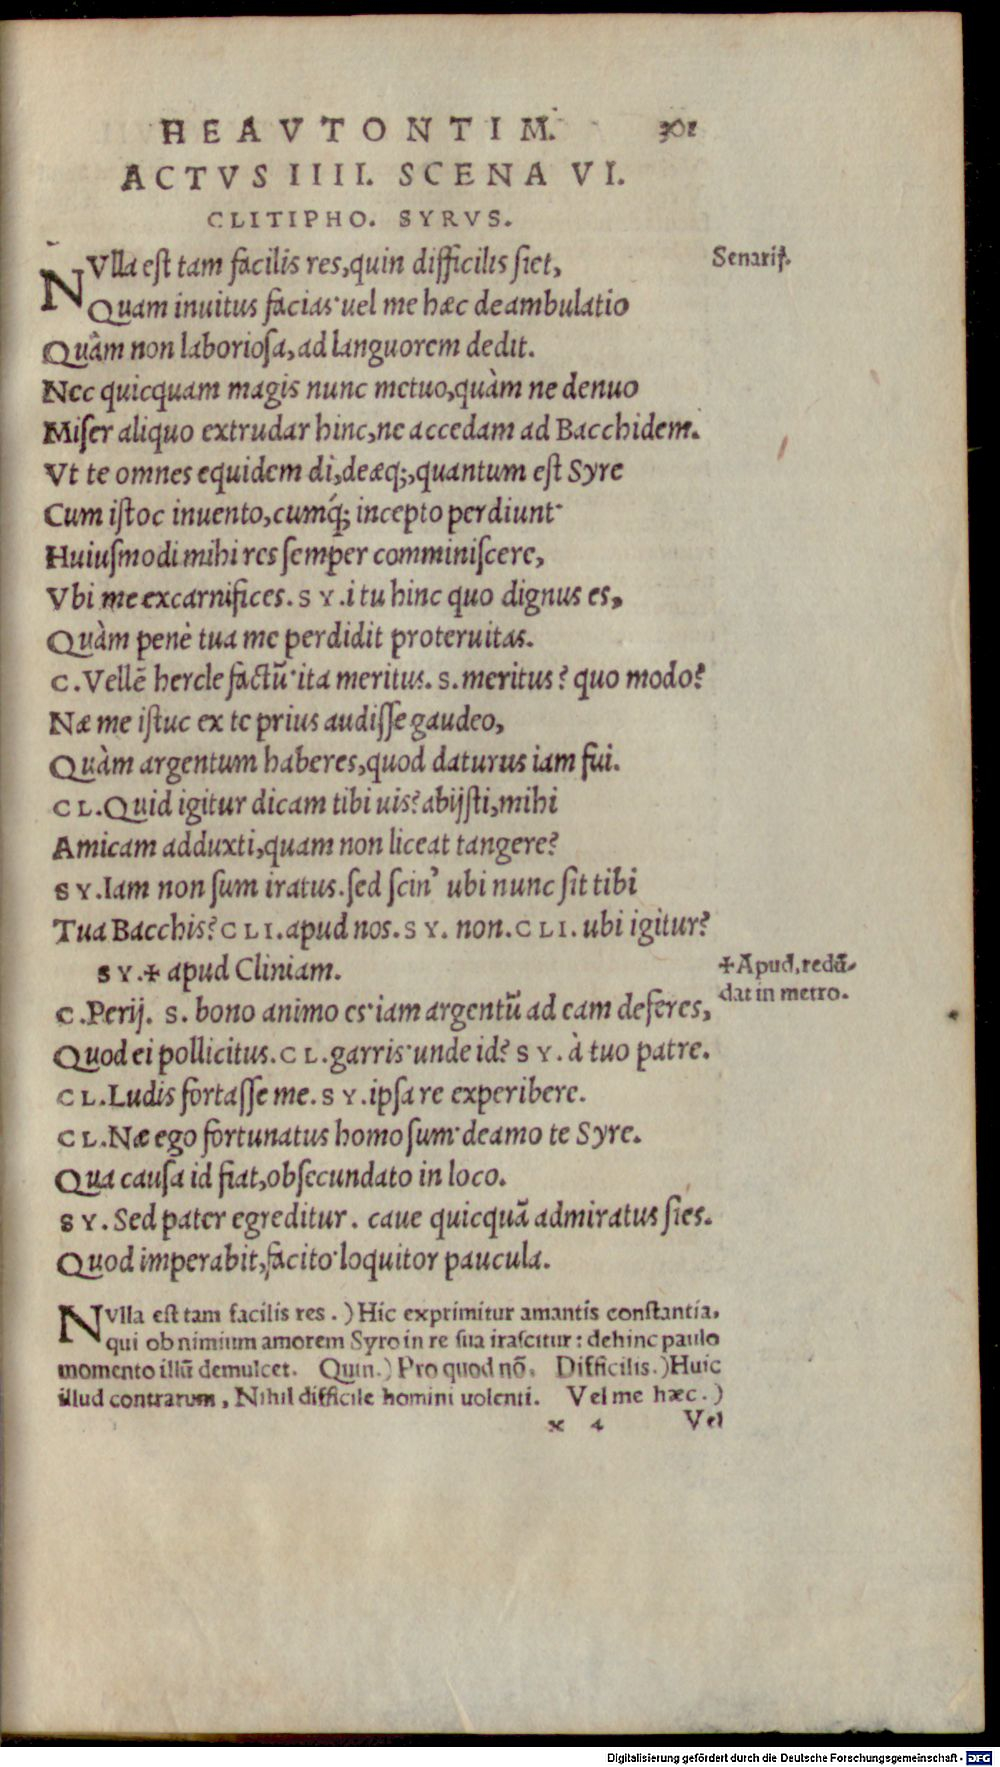 HEAVTONTIM. 301
ACTVS IIII. SCENA VI.
CLITIPHO. SYRVS.
NVlla est tam facilis res, quin difficilis siet, Senarij.
Quam inuitus facias· uel me hæc deambulatio
Quàm non laboriosa, ad languorem dedit.
Nec quicquam magis nunc metuo, quàm ne denuo
Miser aliquo extrudar hinc, ne accedam ad Bacchidem.
Vt te omnes equidem dì, deæq;, quantum est Syre
Cum istoc inuento, cumq́; incepto perdiunt·
Huiusmodi mihi res semper comminiscere,
Vbi me excarnifices. SY. i tu hinc quo dignus es,
Quàm penè tua me perdidit proteruitas.
C. Vellẽ hercle factũ· ita meritus. S. meritus? quo modo?
Næ me istuc ex te prius audisse gaudeo,
Quàm argentum haberes, quod daturus iam fui.
CL. Quid igitur dicam tibi uis? abijsti, mihi
Amicam adduxti, quam non liceat tangere?
SY. Iam non sum iratus. sed scin' ubi nunc sit tibi
Tua Bacchis? CLI. apud nos. SY. non. CLI. ubi igitur?
SY. ✢ apud Cliniam.
✢ Apud, redũ-
dat in metro.
C. Perij. S. bono animo es· iam argentũ ad eam deferes,
Quod ei pollicitus. CL. garris· unde id? SY. à tuo patre.
CL. Ludis fortasse me. SY. ipsa re experibere.
CL. Næ ego fortunatus homo sum· deamo te Syre.
Qua causa id fiat, obsecundato in loco.
SY. Sed pater egreditur. caue quicquã admiratus sies.
Quod imperabit, facito· loquitor paucula.
NVlla est tam facilis res.) Hic exprimitur amantis constantia,
qui ob nimium amorem Syro in re sua irascitur: dehinc paulo
momento illũ demulcet. Quin.) Pro quod nõ. Difficilis.) Huic
illud contrarum, Nihil difficile homini uolenti. Vel me hæc.)
x 4 Vel
Digitalisierung gefördert durch die Deutsche Forschungsgemeinschaft - DFG